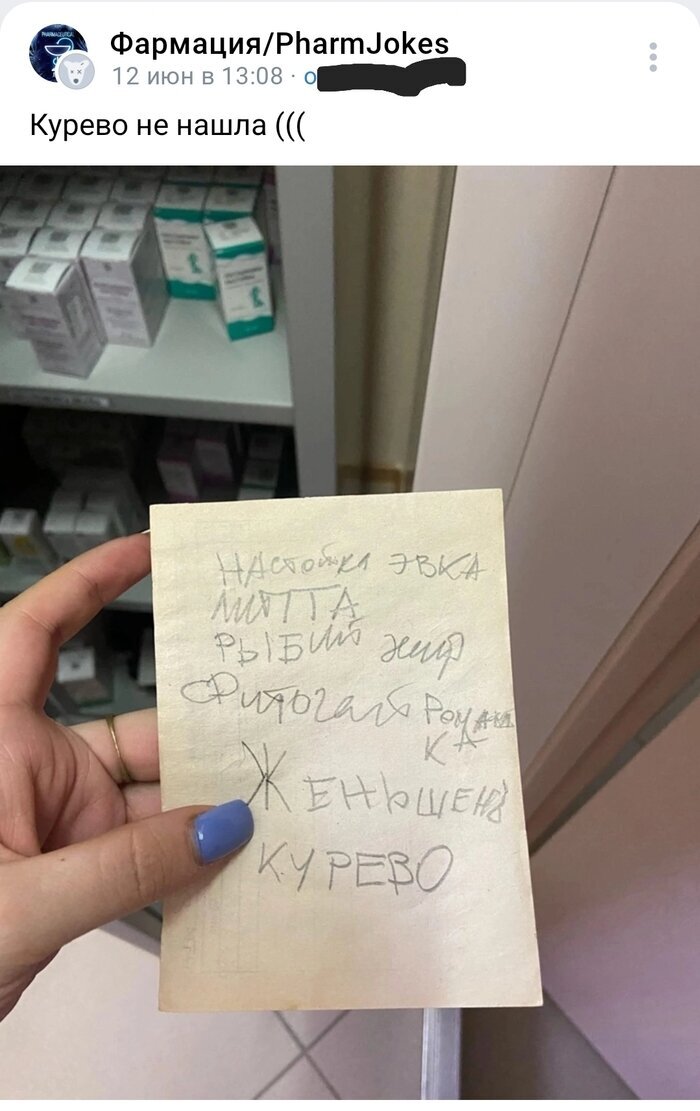 Фармация/PharmJokes
12 июн в 13:08
Курево не нашла (((
НАСТОЙКА ЭВКА
ЛИПТА
РЫБИЙ жир
Фиточай РОМАШ
КА
ЖЕНЬШЕНЬ
КУРЕВО